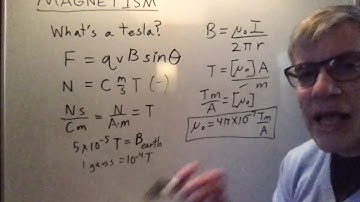 MAGNETISM
What's a tesla?
F = qvB sinθ
N = C m/s T (-)
Ns/Cm = N/A·m = T
5×10⁻⁵ T = Bearth
1 gauss = 10⁻⁴ T
B = μ₀I/2πr
T = [μ₀]A/m
Tm/A = [μ₀]
μ₀ = 4π×10⁻⁷ Tm/A